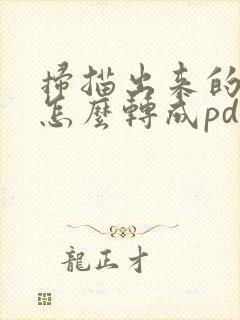 掃描出来的
怎麼轉成pd
龍正才